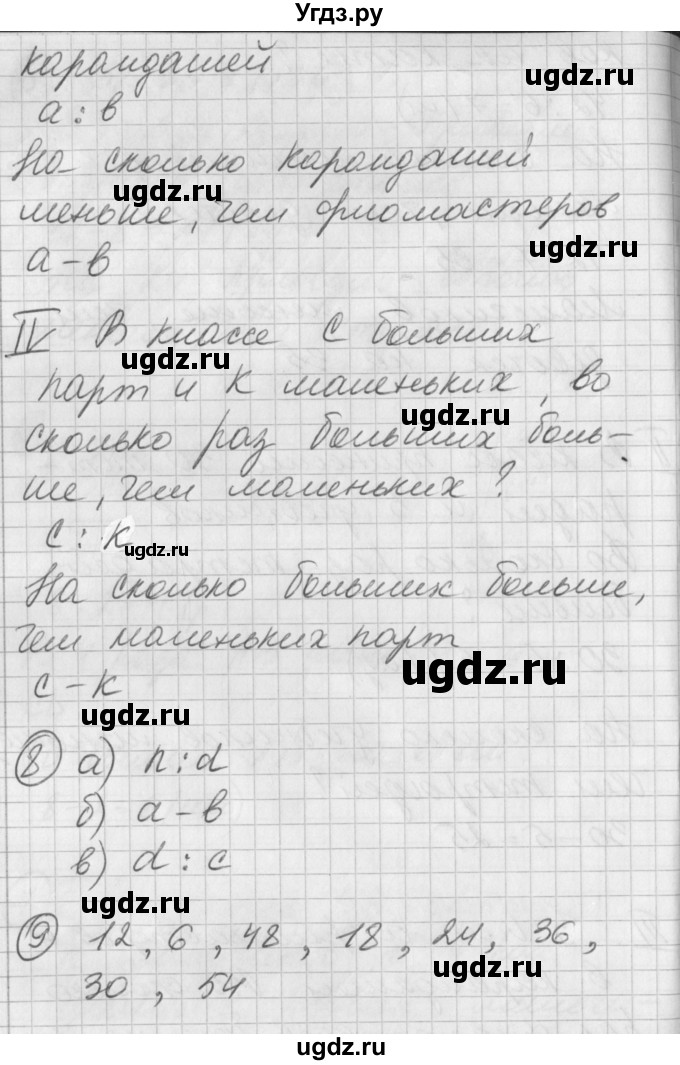 Угдз.ру
карандашей
ugdz.ru
а : в
На сколько карандашей
ugdz.ru
меньше, чем фломастеров
ugdz.ru
а – в
IV В классе С больших
ugdz.ru
парт и К маленьких, во
ugdz.ru
сколько раз больших боль-
ше, чем маленьких?
с : к
ugdz.ru
На сколько больших больше,
чем маленьких парт
ugdz.ru
с – к
ugdz.ru
8 а) n : d
б) а – в
в) d : c
ugdz.ru
9 12, 6, 48, 18, 24, 36,
ugdz.ru
30, 54
ugdz.ru